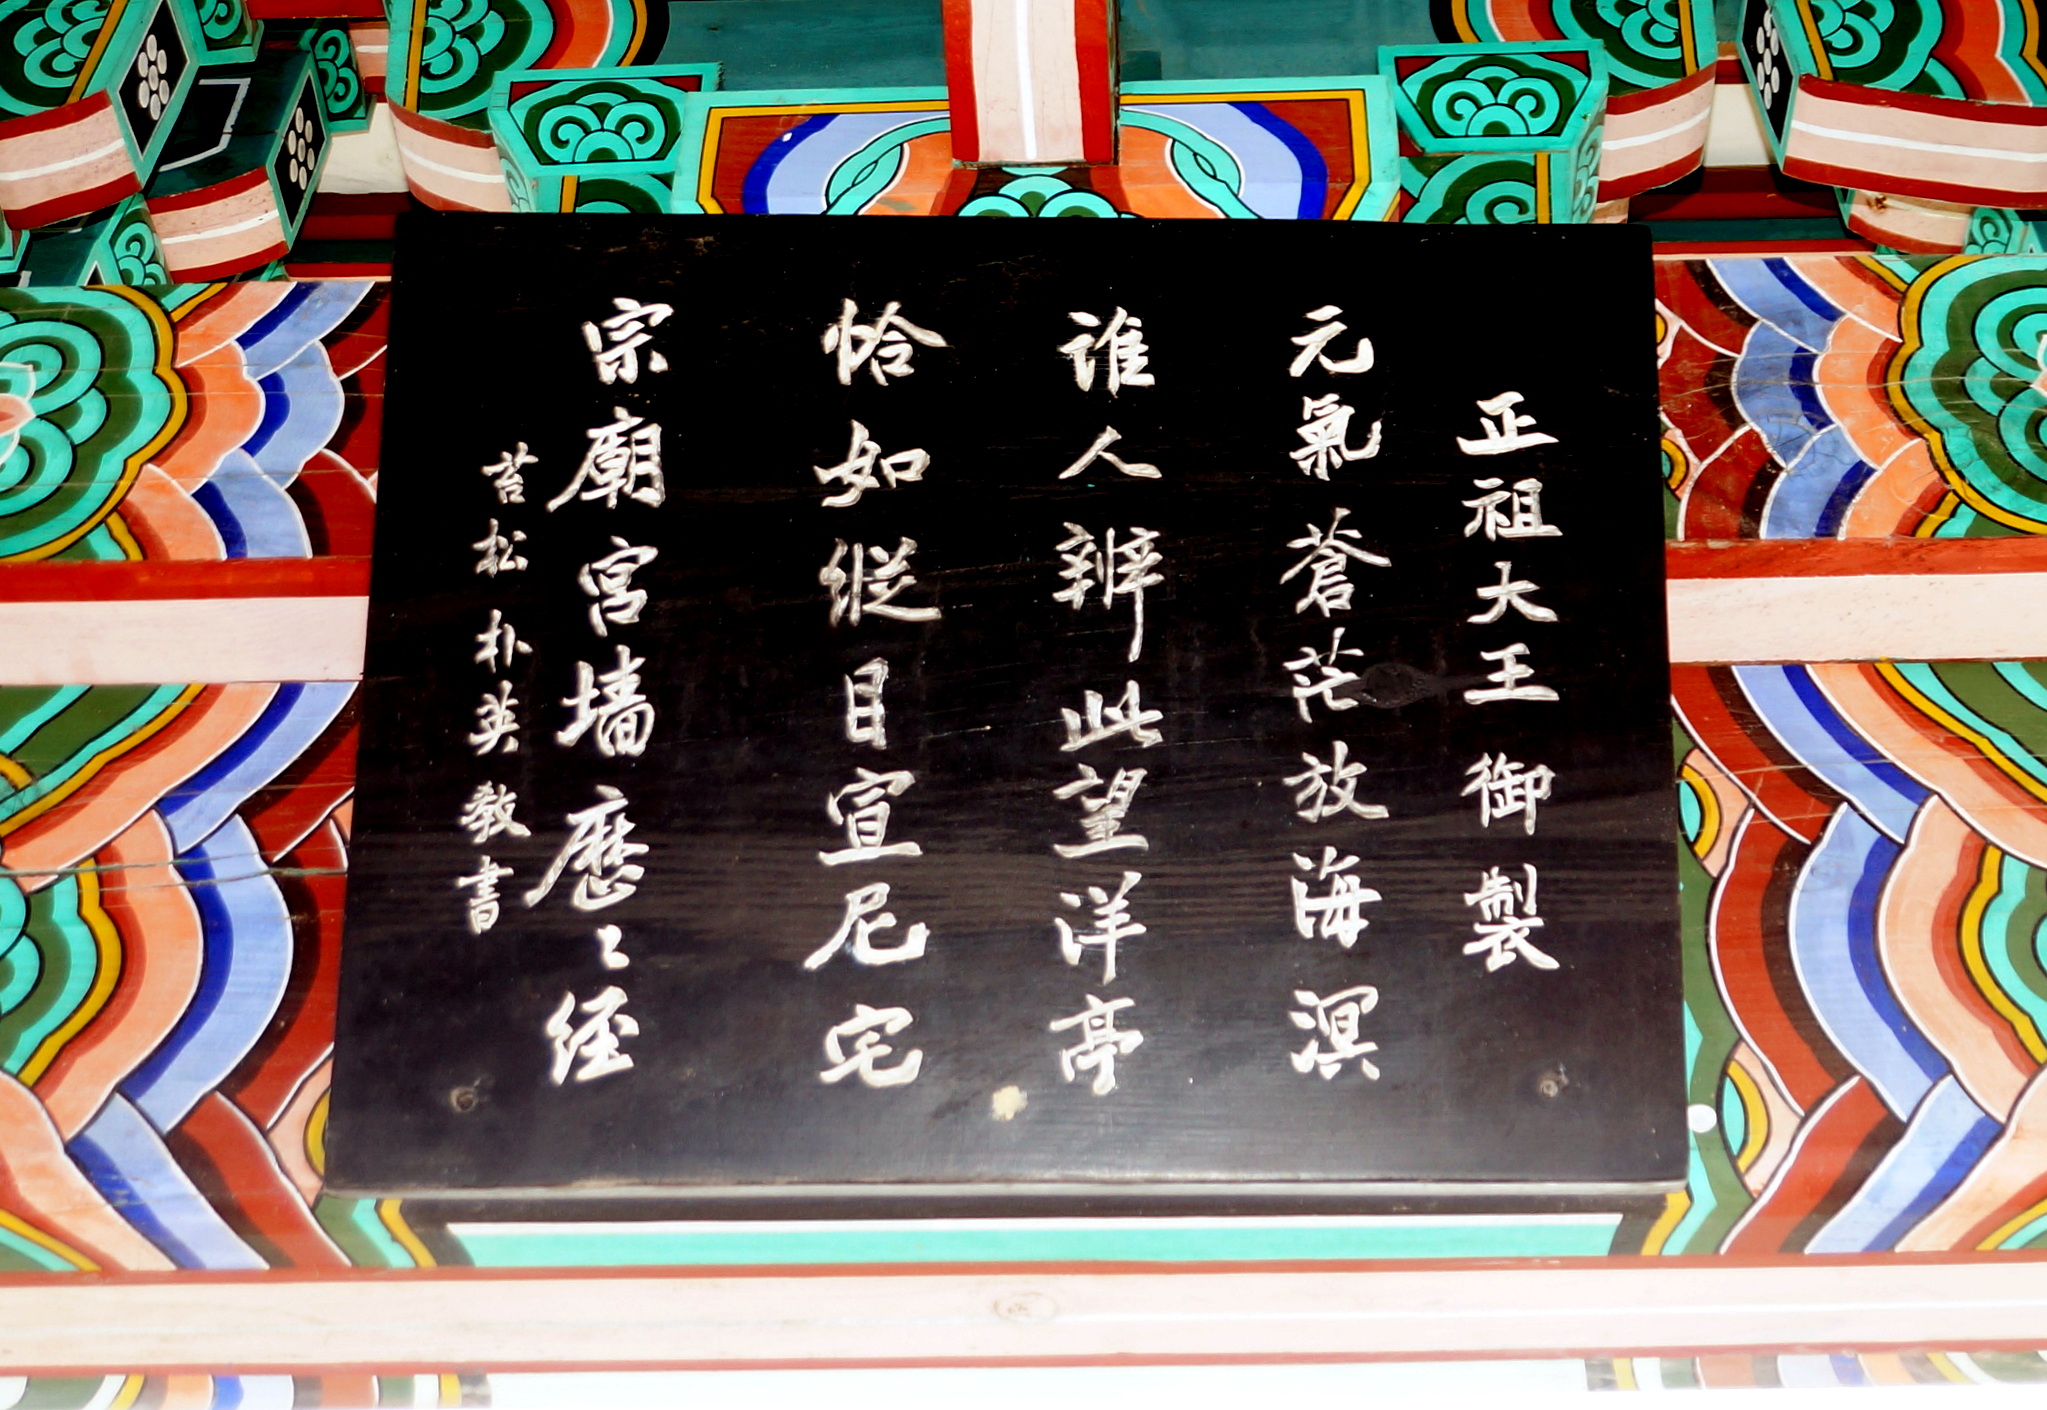 正祖大王御製
元氣蒼茫放海溟
誰人辨此望洋亭
恰如縱目宣尼宅
宗廟宮墻歷〻經
苔松朴英教書